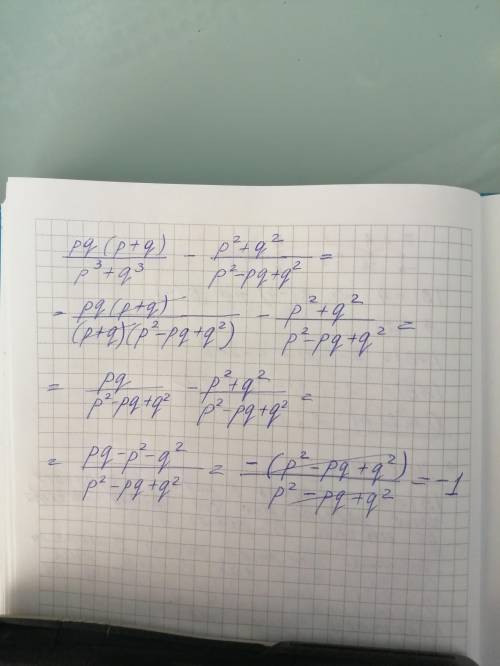 pq(p+q)/(p³+q³) - (p²+q²)/(p²-pq+q²) =
= pq(p+q)/((p+q)(p²-pq+q²)) - (p²+q²)/(p²-pq+q²) =
= pq/(p²-pq+q²) - (p²+q²)/(p²-pq+q²) =
= (pq-p²-q²)/(p²-pq+q²) = -(p²-pq+q²)/(p²-pq+q²) = -1